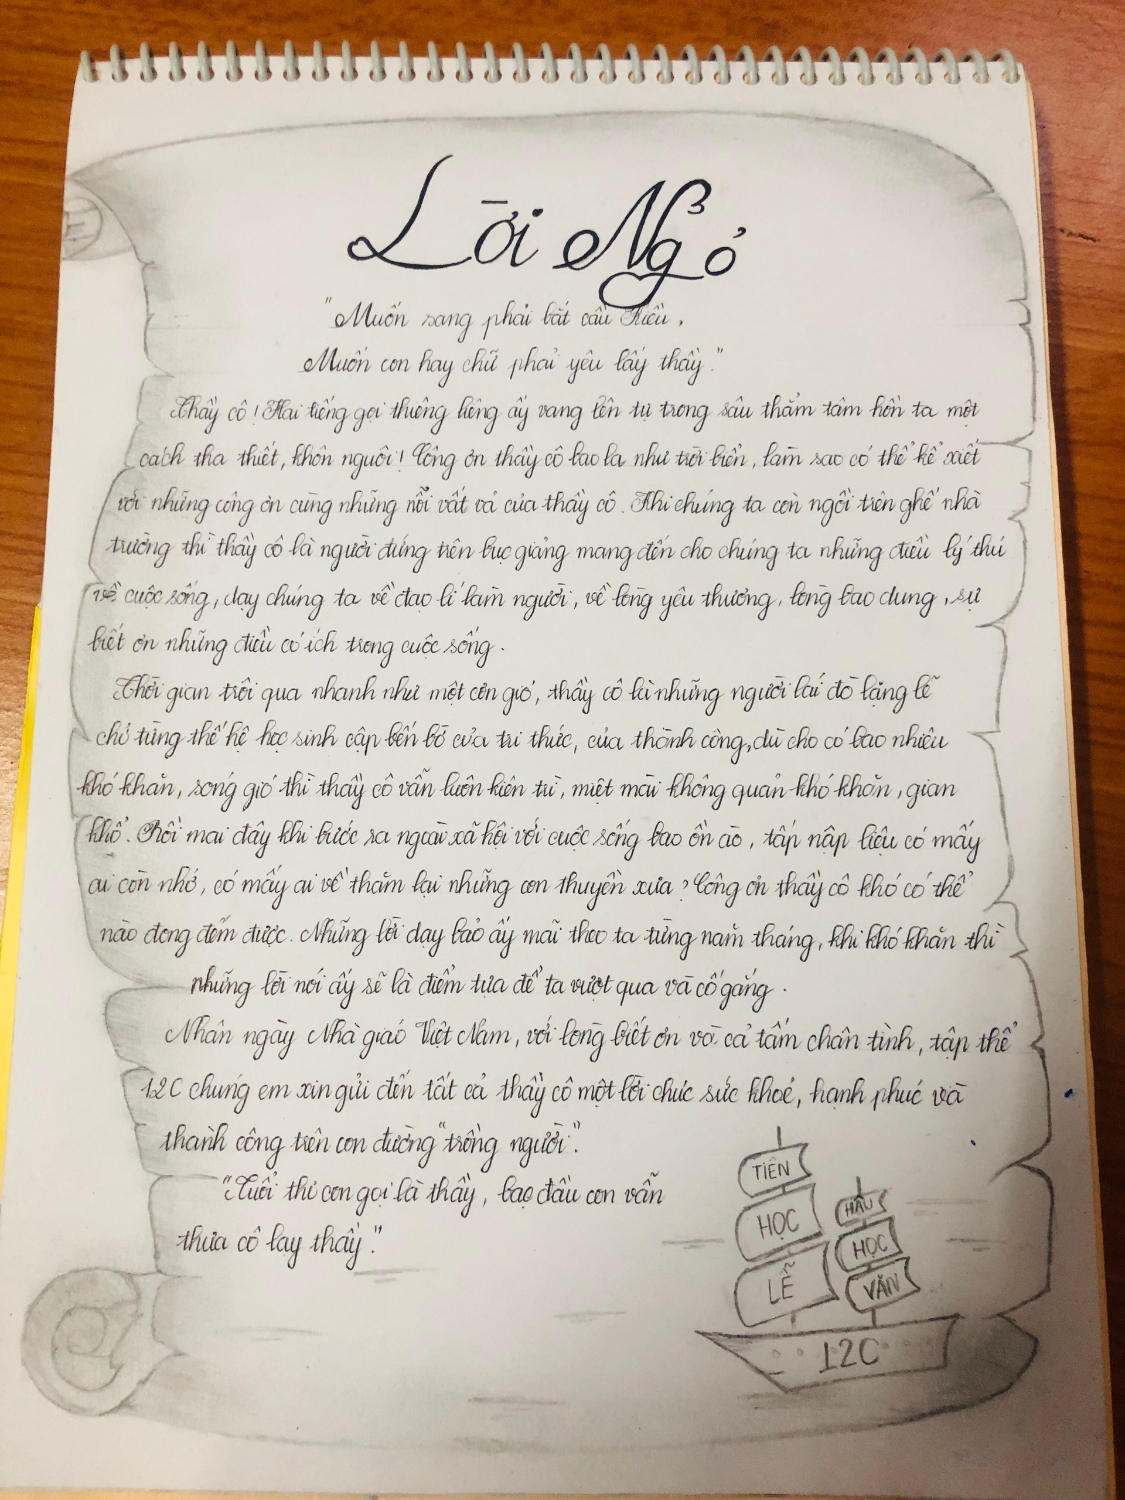 Lời Ngỏ
"Muốn sang phải bắt cầu Kiều,
Muốn con hay chữ phải yêu lấy thầy."
Thầy cô! Hai tiếng gọi thiêng liêng ấy vang lên từ trong sâu thẳm tâm hồn ta một
cách tha thiết, khôn nguôi! Công ơn thầy cô bao la như trời biển, làm sao có thể kể xiết
với những công ơn cùng những nỗi vất vả của thầy cô. Khi chúng ta còn ngồi trên ghế nhà
trường thì thầy cô là người đứng trên bục giảng mang đến cho chúng ta những điều lý thú
về cuộc sống, dạy chúng ta về đạo lí làm người, về lòng yêu thương, lòng bao dung, sự
biết ơn những điều có ích trong cuộc sống.
Thời gian trôi qua nhanh như một cơn gió, thầy cô là những người lái đò lặng lẽ
chở từng thế hệ học sinh cập bến bờ của tri thức, của thành công, dù cho có bao nhiêu
khó khăn, sóng gió thì thầy cô vẫn luôn kiên trì, miệt mài không quản khó khăn, gian
khổ. Rồi mai đây khi bước ra ngoài xã hội với cuộc sống bao ồn ào, tấp nập liệu có mấy
ai còn nhớ, có mấy ai về thăm lại những con thuyền xưa? Công ơn thầy cô khó có thể
nào đong đếm được. Những lời dạy bảo ấy mãi theo ta từng năm tháng, khi khó khăn thì
những lời nói ấy sẽ là điểm tựa để ta vượt qua và cố gắng.
Nhân ngày Nhà giáo Việt Nam, với lòng biết ơn và cả tấm chân tình, tập thể
12C chúng em xin gửi đến tất cả thầy cô một lời chúc sức khoẻ, hạnh phúc và
thành công trên con đường "trồng người".
"Tuổi thơ con gọi là thầy, bạc đầu con vẫn
thưa cô lạy thầy."
TIÊN
HỌC
LỄ
HẬU
HỌC
VĂN
12C